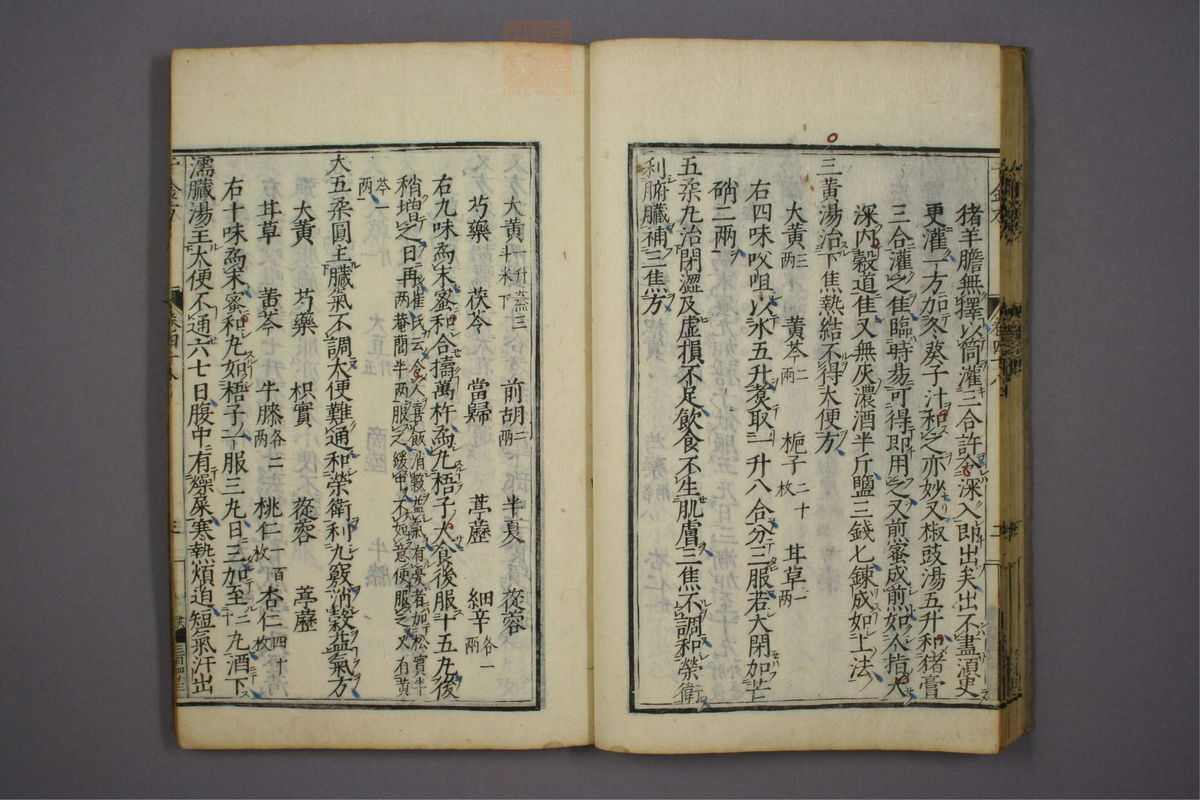 猪羊膽無擇以筒灌三合許令深入即出矣出不盡須臾
更灌一方加冬葵子汁和之亦妙又椒豉湯五升和猪膏
三合灌之佳臨時易可得即用之又煎蜜成煎如人指大
深内穀道佳又無灰濃酒半斤鹽三錢匕錬成如上法
三黃湯治下焦熱結不得大便方
大黃三兩 黃芩二兩 梔子二十枚 甘草一兩
右四味㕮咀以水五升煑取一升八合分三服若大閉加芒
硝二兩
五柔丸治閉澀及虚損不足飲食不生肌膚三焦不調和榮衛
利腑臟補三焦方
大黃一升蒸三斗米下 前胡二兩 半夏 蓯蓉
芍藥 茯苓 當歸 葶藶 細辛各一兩
右九味爲末蜜和合擣萬杵爲丸梧子大食後服十五丸後
稍增之日再崔氏云令人喜飯消穀益氣有憂者加松實半
兩菴䕡半兩服之緩中不如意便服之又有黃
芩一兩
大五柔圓主臟氣不調大便難通和榮衛利九竅消穀益氣方
大黃 芍藥 枳實 蓯蓉 葶藶
甘草 黃芩 牛膝各二兩 桃仁一百枚 杏仁四十枚
右十味爲末蜜和丸如梧子一服三丸日三加至二十丸酒下
濡臟湯主大便不通六七日腹中有燥屎寒熱煩迫短氣汗出